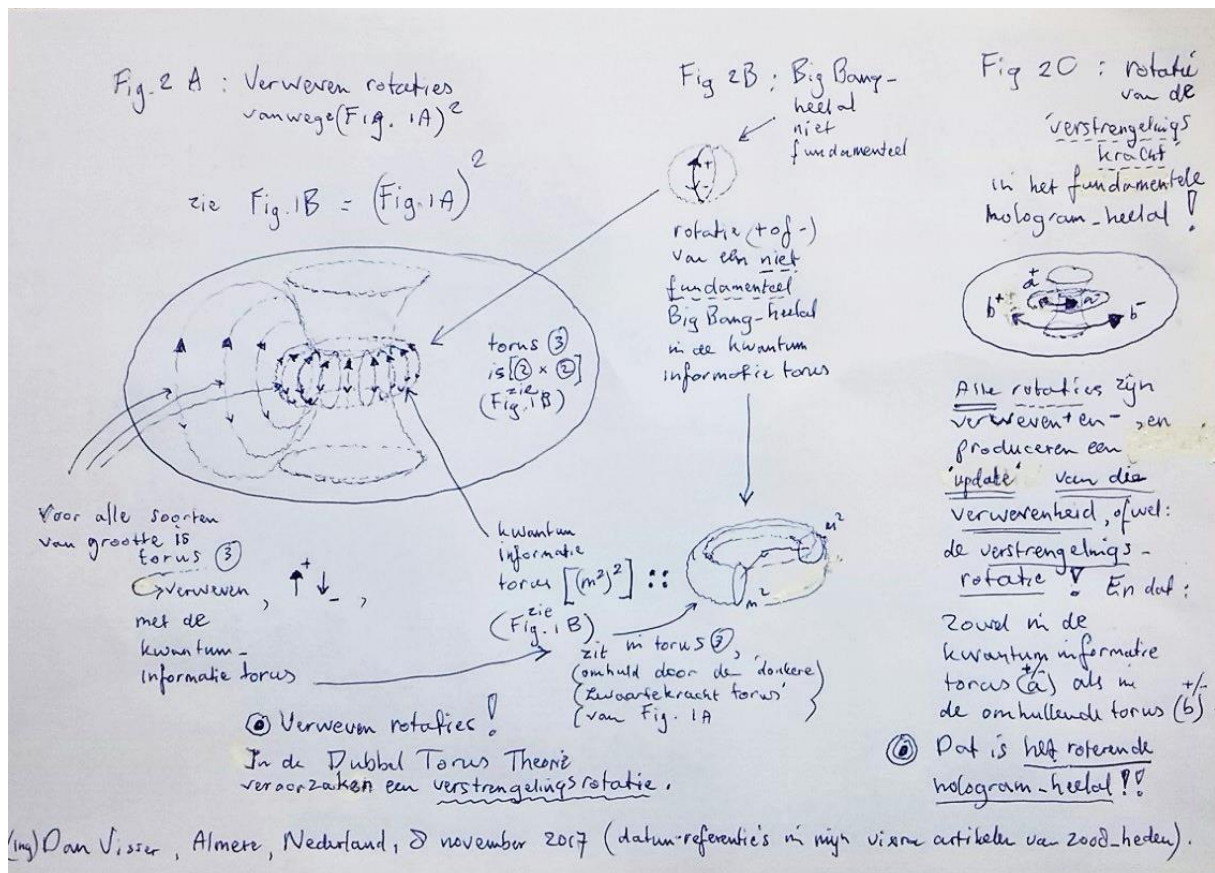 Fig. 2 A : Verweven rotaties
vanwege (Fig. 1A)²
zie Fig. 1B = (Fig. 1A)²
torus ③
is [② × ②]
zie
(Fig. 1B)
Voor alle soorten
van grootte is
torus ③
verweven, ↑+ ↓-,
met de
kwantum-
informatie torus
kwantum
informatie
torus [(m²)²] ::
zie
(Fig. 1B)
m²
m²
zit in torus ③,
(omhuld door de 'donkere
zwaartekracht torus'
van Fig. 1A)
⦿ Verweven rotaties!
In de Dubbel Torus Theorie
veroorzaken een verstrengelingsrotatie.
Fig 2B : Big Bang-
heelal
niet
fundamenteel
+
-
rotatie (+ of -)
van een niet
fundamenteel
Big Bang-heelal
in de kwantum
informatie torus
Fig 2C : rotatie
van de
'verstrengelings
kracht'
in het fundamentele
hologram-heelal!
a+
a-
b+
b-
Alle rotaties zijn
verweven + en -, en
produceren een
'update' van die
verwevenheid, ofwel:
de verstrengelings-
rotatie! En dat:
zowel in de
kwantum informatie
torus (a)+/- als in
de omhullende torus (b)+/-
⦿ Dat is het roterende
hologram-heelal!!
(ing) Dan Visser, Almere, Nederland, 8 november 2017 (datum-referentie's in mijn vixra artikelen van 2008_heden).